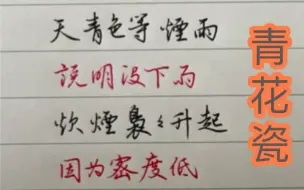 天青色等煙雨
說明没下雨
炊煙裊々升起
因为密度低
青花瓷